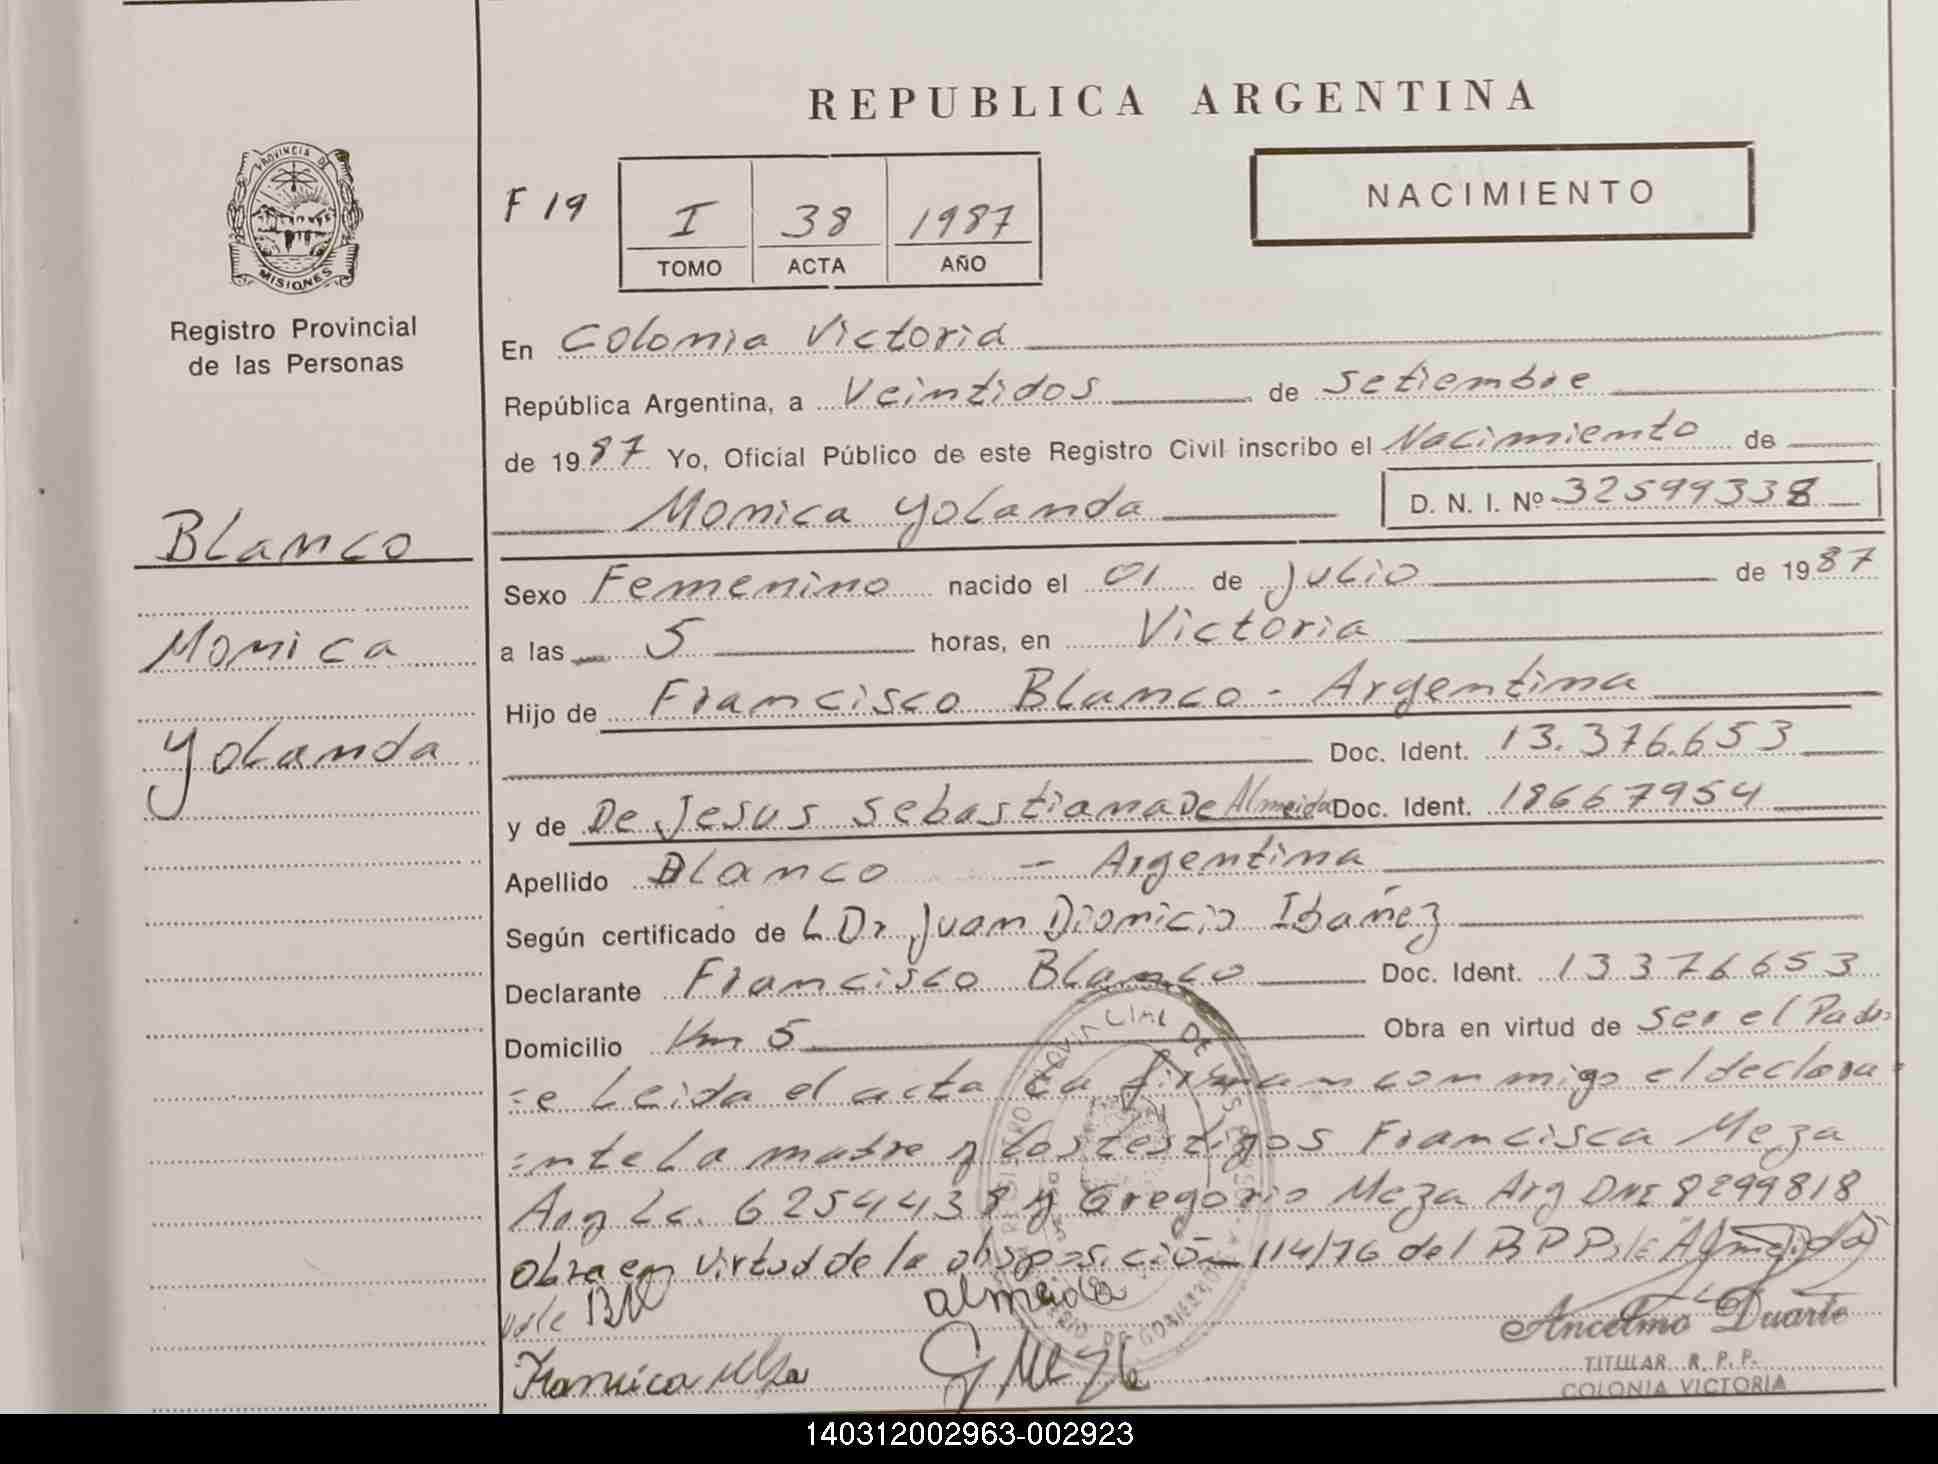 REPUBLICA ARGENTINA
PROVINCIA DE
MISIONES
Registro Provincial
de las Personas
F 19
I 38 1987
TOMO ACTA AÑO
NACIMIENTO
En Colonia Victoria
República Argentina, a Veintidos de Setiembre
de 1987 Yo, Oficial Público de este Registro Civil inscribo el Nacimiento de
Monica Yolanda D. N. I. Nº 32599338
Blanco
Monica
Yolanda
Sexo Femenino nacido el 01 de Julio de 1987
a las 5 horas, en Victoria
Hijo de Francisco Blanco - Argentina
Doc. Ident. 13.376.653
y de De Jesus Sebastiana De Almeida Doc. Ident. 18667954
Apellido Blanco - Argentina
Según certificado de L Dr Juan Dionicio Ibañez
Declarante Francisco Blanco Doc. Ident. 13376653
Domicilio Km 5 Obra en virtud de Ser el Padr=
=e Leida el acta La firman conmigo el declara=
=nte La madre y Los testigos Francisca Meza
Arg Lc. 6254438 y Gregorio Meza Arg DNI 8299818
obra en virtud de la disposición 114/76 del RPP "Almeida"
vale
almeida
Francisca Meza G Meza
Ancelmo Duarte
TITULAR R. P. P.
COLONIA VICTORIA
140312002963-002923